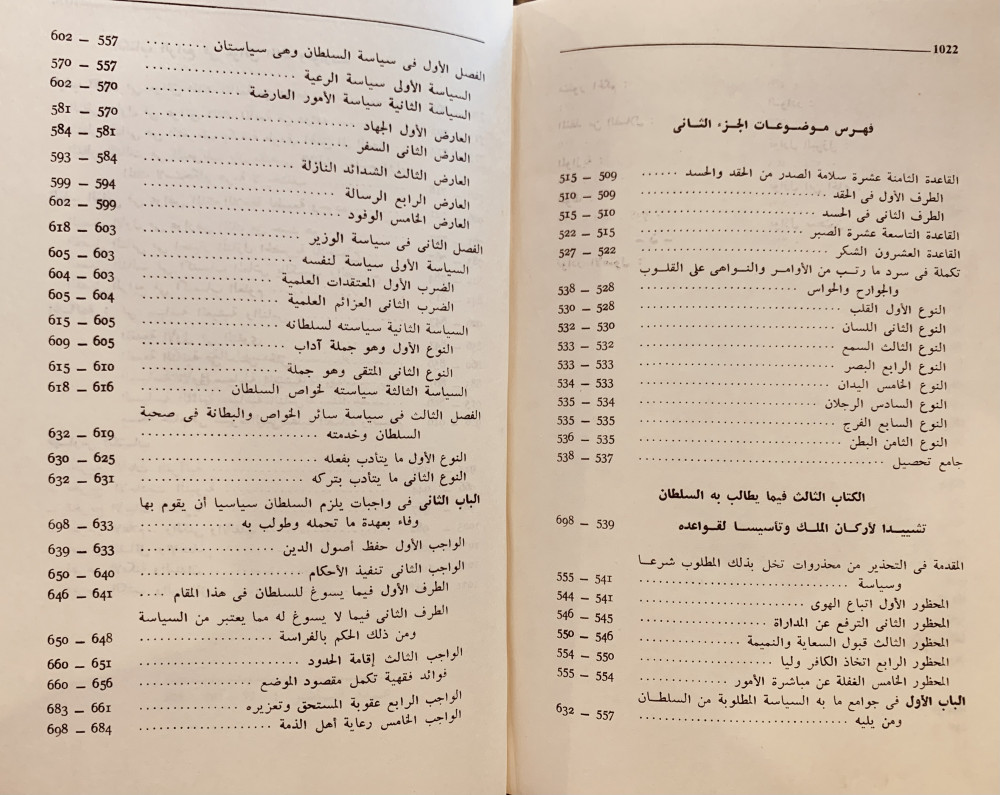 1022
فهرس موضوعات الجزء الثانى
القاعدة الثامنة عشرة سلامة الصدر من الحقد والحسد ...... 509 – 515
الطرف الأول فى الحقد ...... 509 – 510
الطرف الثانى فى الحسد ...... 510 – 515
القاعدة التاسعة عشرة الصبر ...... 515 – 522
القاعدة العشرون الشكر ...... 522 – 527
تكملة فى سرد ما رتب من الأوامر والنواهى على القلوب
والجوارح والحواس ...... 528 – 538
النوع الأول القلب ...... 528 – 530
النوع الثانى اللسان ...... 530 – 532
النوع الثالث السمع ...... 532 – 533
النوع الرابع البصر ...... 533 – 533
النوع الخامس اليدان ...... 533 – 534
النوع السادس الرجلان ...... 534 – 535
النوع السابع الفرج ...... 535 – 535
النوع الثامن البطن ...... 535 – 536
جامع تحصيل ...... 537 – 538
الكتاب الثالث فيما يطالب به السلطان
تشييدا لأركان الملك وتأسيسا لقواعده 539 – 698
المقدمة فى التحذير من محذورات تخل بذلك المطلوب شرعا
وسياسة ...... 541 – 555
المحظور الأول اتباع الهوى ...... 541 – 544
المحظور الثانى الترفع عن المداراة ...... 545 – 546
المحظور الثالث قبول السعاية والنميمة ...... 546 – 550
المحظور الرابع اتخاذ الكافر وليا ...... 550 – 554
المحظور الخامس الغفلة عن مباشرة الأمور ...... 554 – 555
الباب الأول فى جوامع ما به السياسة المطلوبة من السلطان
ومن يليه ...... 557 – 632
الفصل الأول فى سياسة السلطان وهى سياستان ...... 557 – 602
السياسة الأولى سياسة الرعية ...... 557 – 570
السياسة الثانية سياسة الأمور العارضة ...... 570 – 602
العارض الأول الجهاد ...... 570 – 581
العارض الثانى السفر ...... 581 – 584
العارض الثالث الشدائد النازلة ...... 584 – 593
العارض الرابع الرسالة ...... 594 – 599
العارض الخامس الوفود ...... 599 – 602
الفصل الثانى فى سياسة الوزير ...... 603 – 618
السياسة الأولى سياسة لنفسه ...... 603 – 605
الضرب الأول المعتقدات العلمية ...... 603 – 604
الضرب الثانى العزائم العلمية ...... 604 – 605
السياسة الثانية سياسته لسلطانه ...... 605 – 615
النوع الأول وهو جملة آداب ...... 605 – 609
النوع الثانى المتقى وهو جملة ...... 610 – 615
السياسة الثالثة سياسته لخواص السلطان 616 – 618
الفصل الثالث فى سياسة سائر الخواص والبطانة فى صحبة
السلطان وخدمته ...... 619 – 632
النوع الأول ما يتأدب بفعله ...... 625 – 630
النوع الثانى ما يتأدب بتركه ...... 631 – 632
الباب الثانى فى واجبات يلزم السلطان سياسيا أن يقوم بها
وفاء بعهدة ما تحمله وطولب به ...... 633 – 698
الواجب الأول حفظ أصول الدين ...... 633 – 639
الواجب الثانى تنفيذ الأحكام ...... 640 – 650
الطرف الأول فيما يسوغ للسلطان فى هذا المقام 641 – 646
الطرف الثانى فيما لا يسوغ له مما يعتبر من السياسة
ومن ذلك الحكم بالفراسة ...... 648 – 650
الواجب الثالث إقامة الحدود ...... 651 – 660
فوائد فقهية تكمل مقصود الموضع ...... 656 – 660
الواجب الرابع عقوبة المستحق وتعزيره ...... 661 – 683
الواجب الخامس رعاية أهل الذمة ...... 684 – 698